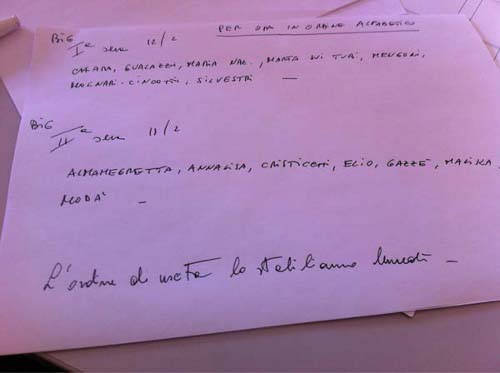 PER ORA IN ORDINE ALFABETICO
BIG
Iª sera 12/2
CHIARA, GUALAZZI, MARIA NAZ., MARTA SUI TUBI, MENGONI,
MOLINARI-CINCOTTI, SILVESTRI —
BIG
IIª sera 13/2
ALMAMEGRETTA, ANNALISA, CRISTICCHI, ELIO, GAZZÈ, MALIKA,
MODA' —
L'ordine di uscita lo stabiliamo lunedì —